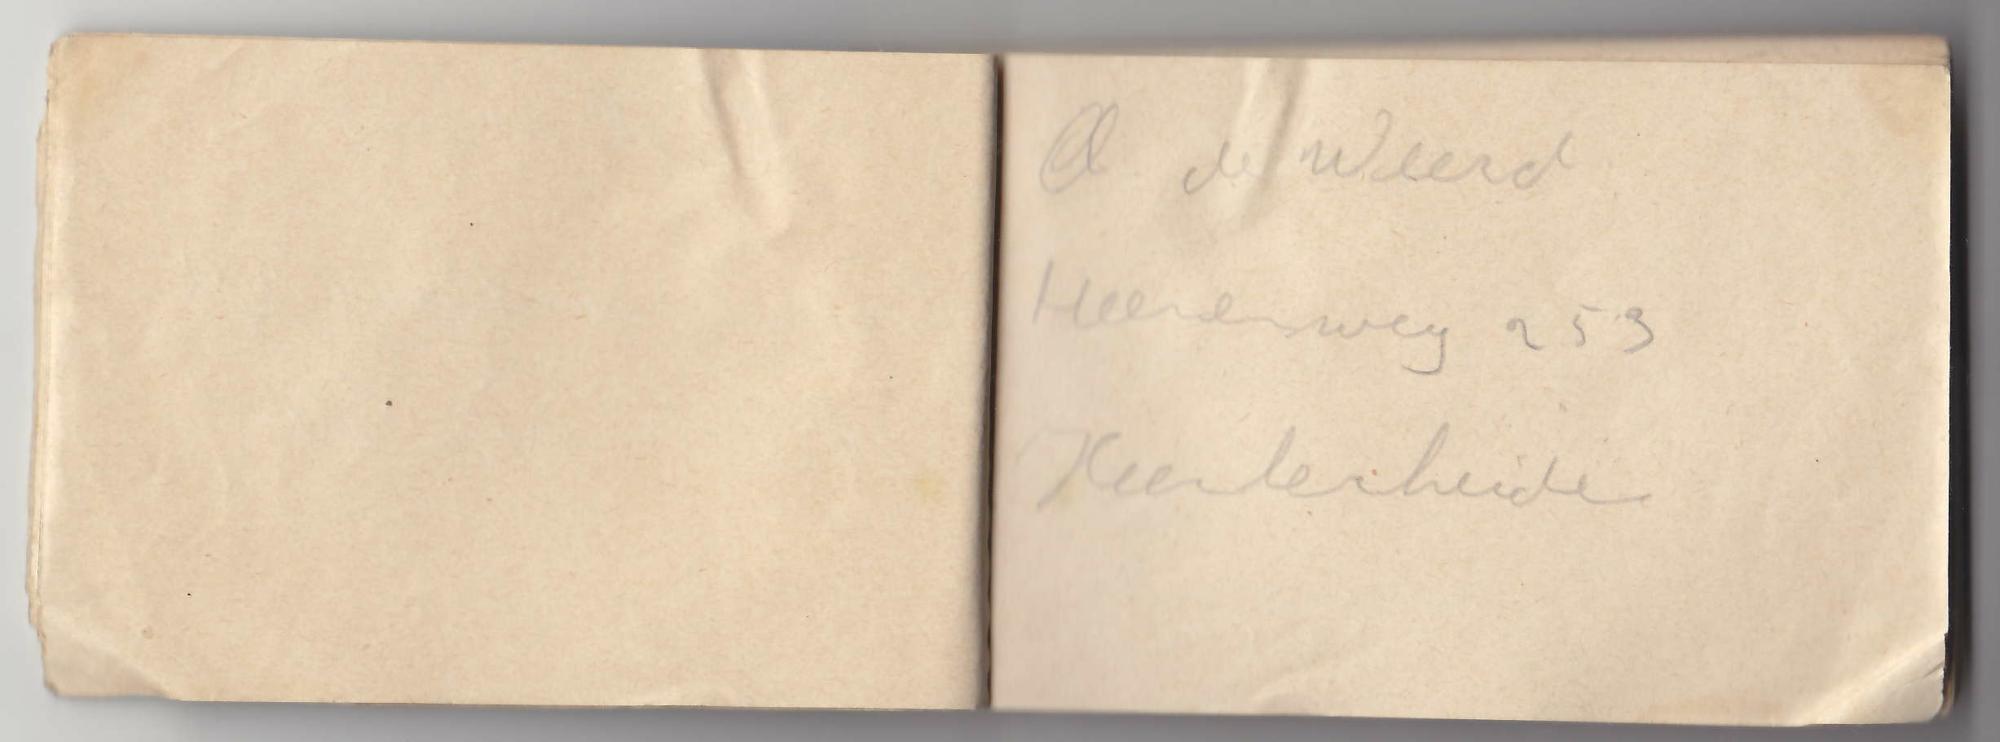 A de Weerd
Heerenweg 253
Heerlerheide